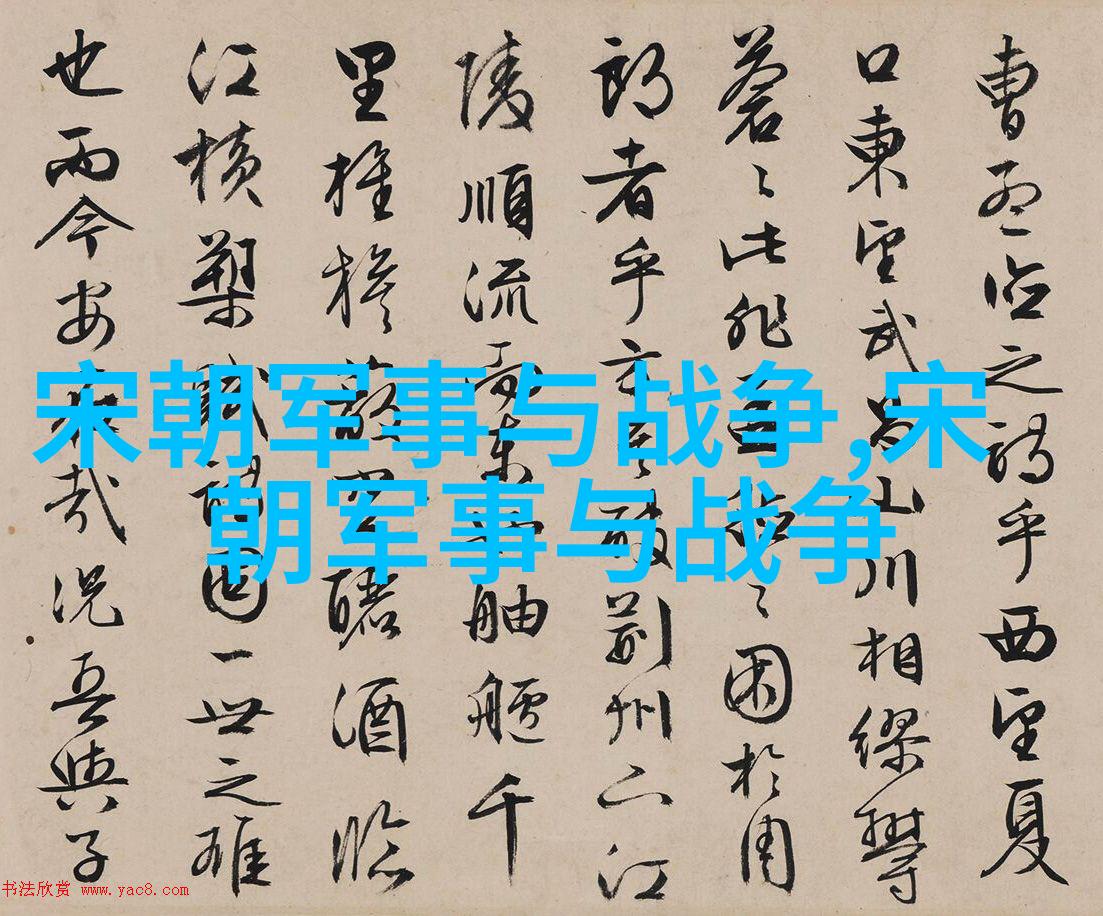 曹孟德之詩乎西望夏
口東望武昌山川相繆鬱
蒼〻此非孟德之困於周
郎者乎方其破荊州下江
陵順流而東也舳艫千
里旌旗蔽空釃酒臨
江橫槊賦詩固一世之雄
也而今安在哉況吾與子
宋朝军事与战争,宋
朝军事与战争
书法欣赏 www.yac8.com